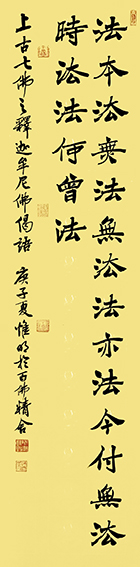 法本法無法無法法亦法今付無法
時法法何曾法
上古七佛之釋迦牟尼佛偈語 庚子夏惟明於百佛精舍